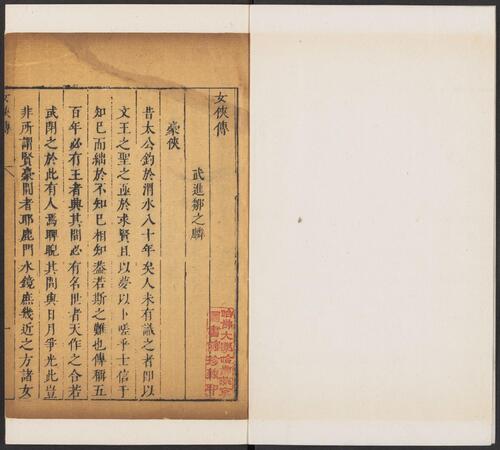 女俠傳
武進鄒之麟
豪俠
昔太公釣於渭水八十年矣人未有識之者即以
文王之聖之亟於求賢且以夢以卜嗟乎士信于
知巳而絀於不知巳相知葢若斯之難也傳稱五
百年必有王者興其間必有名世者天作之合若
武閉之於此有人焉聯睨其間與日月爭光此豈
非所謂賢豪間者耶鹿門水鏡庶幾近之方諸女
女俠傳
一
哈佛大學哈佛燕京
圖書館珍藏印